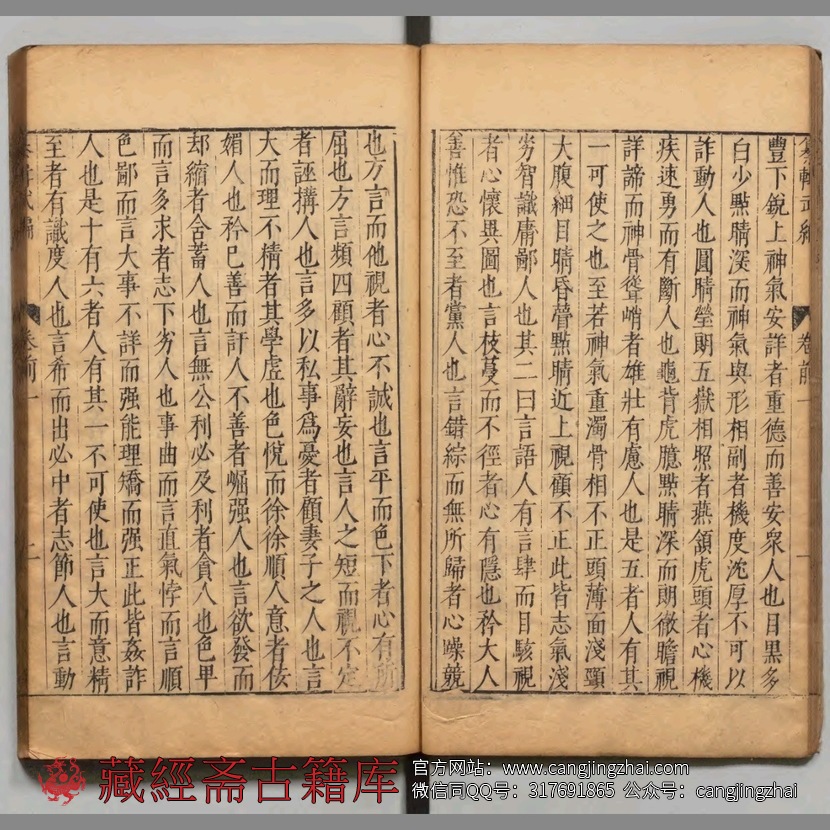 豐下銳上神氣安詳者重德而善安衆人也目黒多
白少點睛深而神氣與形相副者機度沈厚不可以
詐動人也圓睛瑩朗五嶽相照者燕頷虎頭者心機
疾速勇而有斷人也龜背虎臆點睛深而朗徹瞻視
詳諦而神骨聳峭者雄壯有慮人也是五者人有其
一可使之也至若神氣重濁骨相不正頭薄面淺頸
大腹細目睛昏瞢點睛近上視顧不正此皆志氣淺
劣智識庸鄙人也其二曰言語人有言肆而目駭視
者心懷異圖也言枝蔓而不徑者心有隱也矜大人
善惟恐不至者黨人也言錯綜而無所歸者心躁競
卷前 一
也方言而他視者心不誠也言平而色下者心有所
屈也方言頻四顧者其辭妄也言人之短而視不定
者誣搆人也言多以私事爲憂者顧妻子之人也言
大而理不精者其學虛也色悅而徐徐順人意者佞
媚人也矜已善而訐人不善者崛强人也言欲發而
却縮者含蓄人也言無公利必及利者貪人也色卑
而言多求者志下劣人也事曲而言直氣悖而言順
色鄙而言大事不詳而强能理矯而强正此皆姦詐
人也是十有六者人有其一不可使也言大而意精
至者有識度人也言希而出必中者志節人也言動
卷前 一
藏經斋古籍库
官方网站：www.cangjingzhai.com
微信同QQ号：317691865 公众号：cangjingzhai